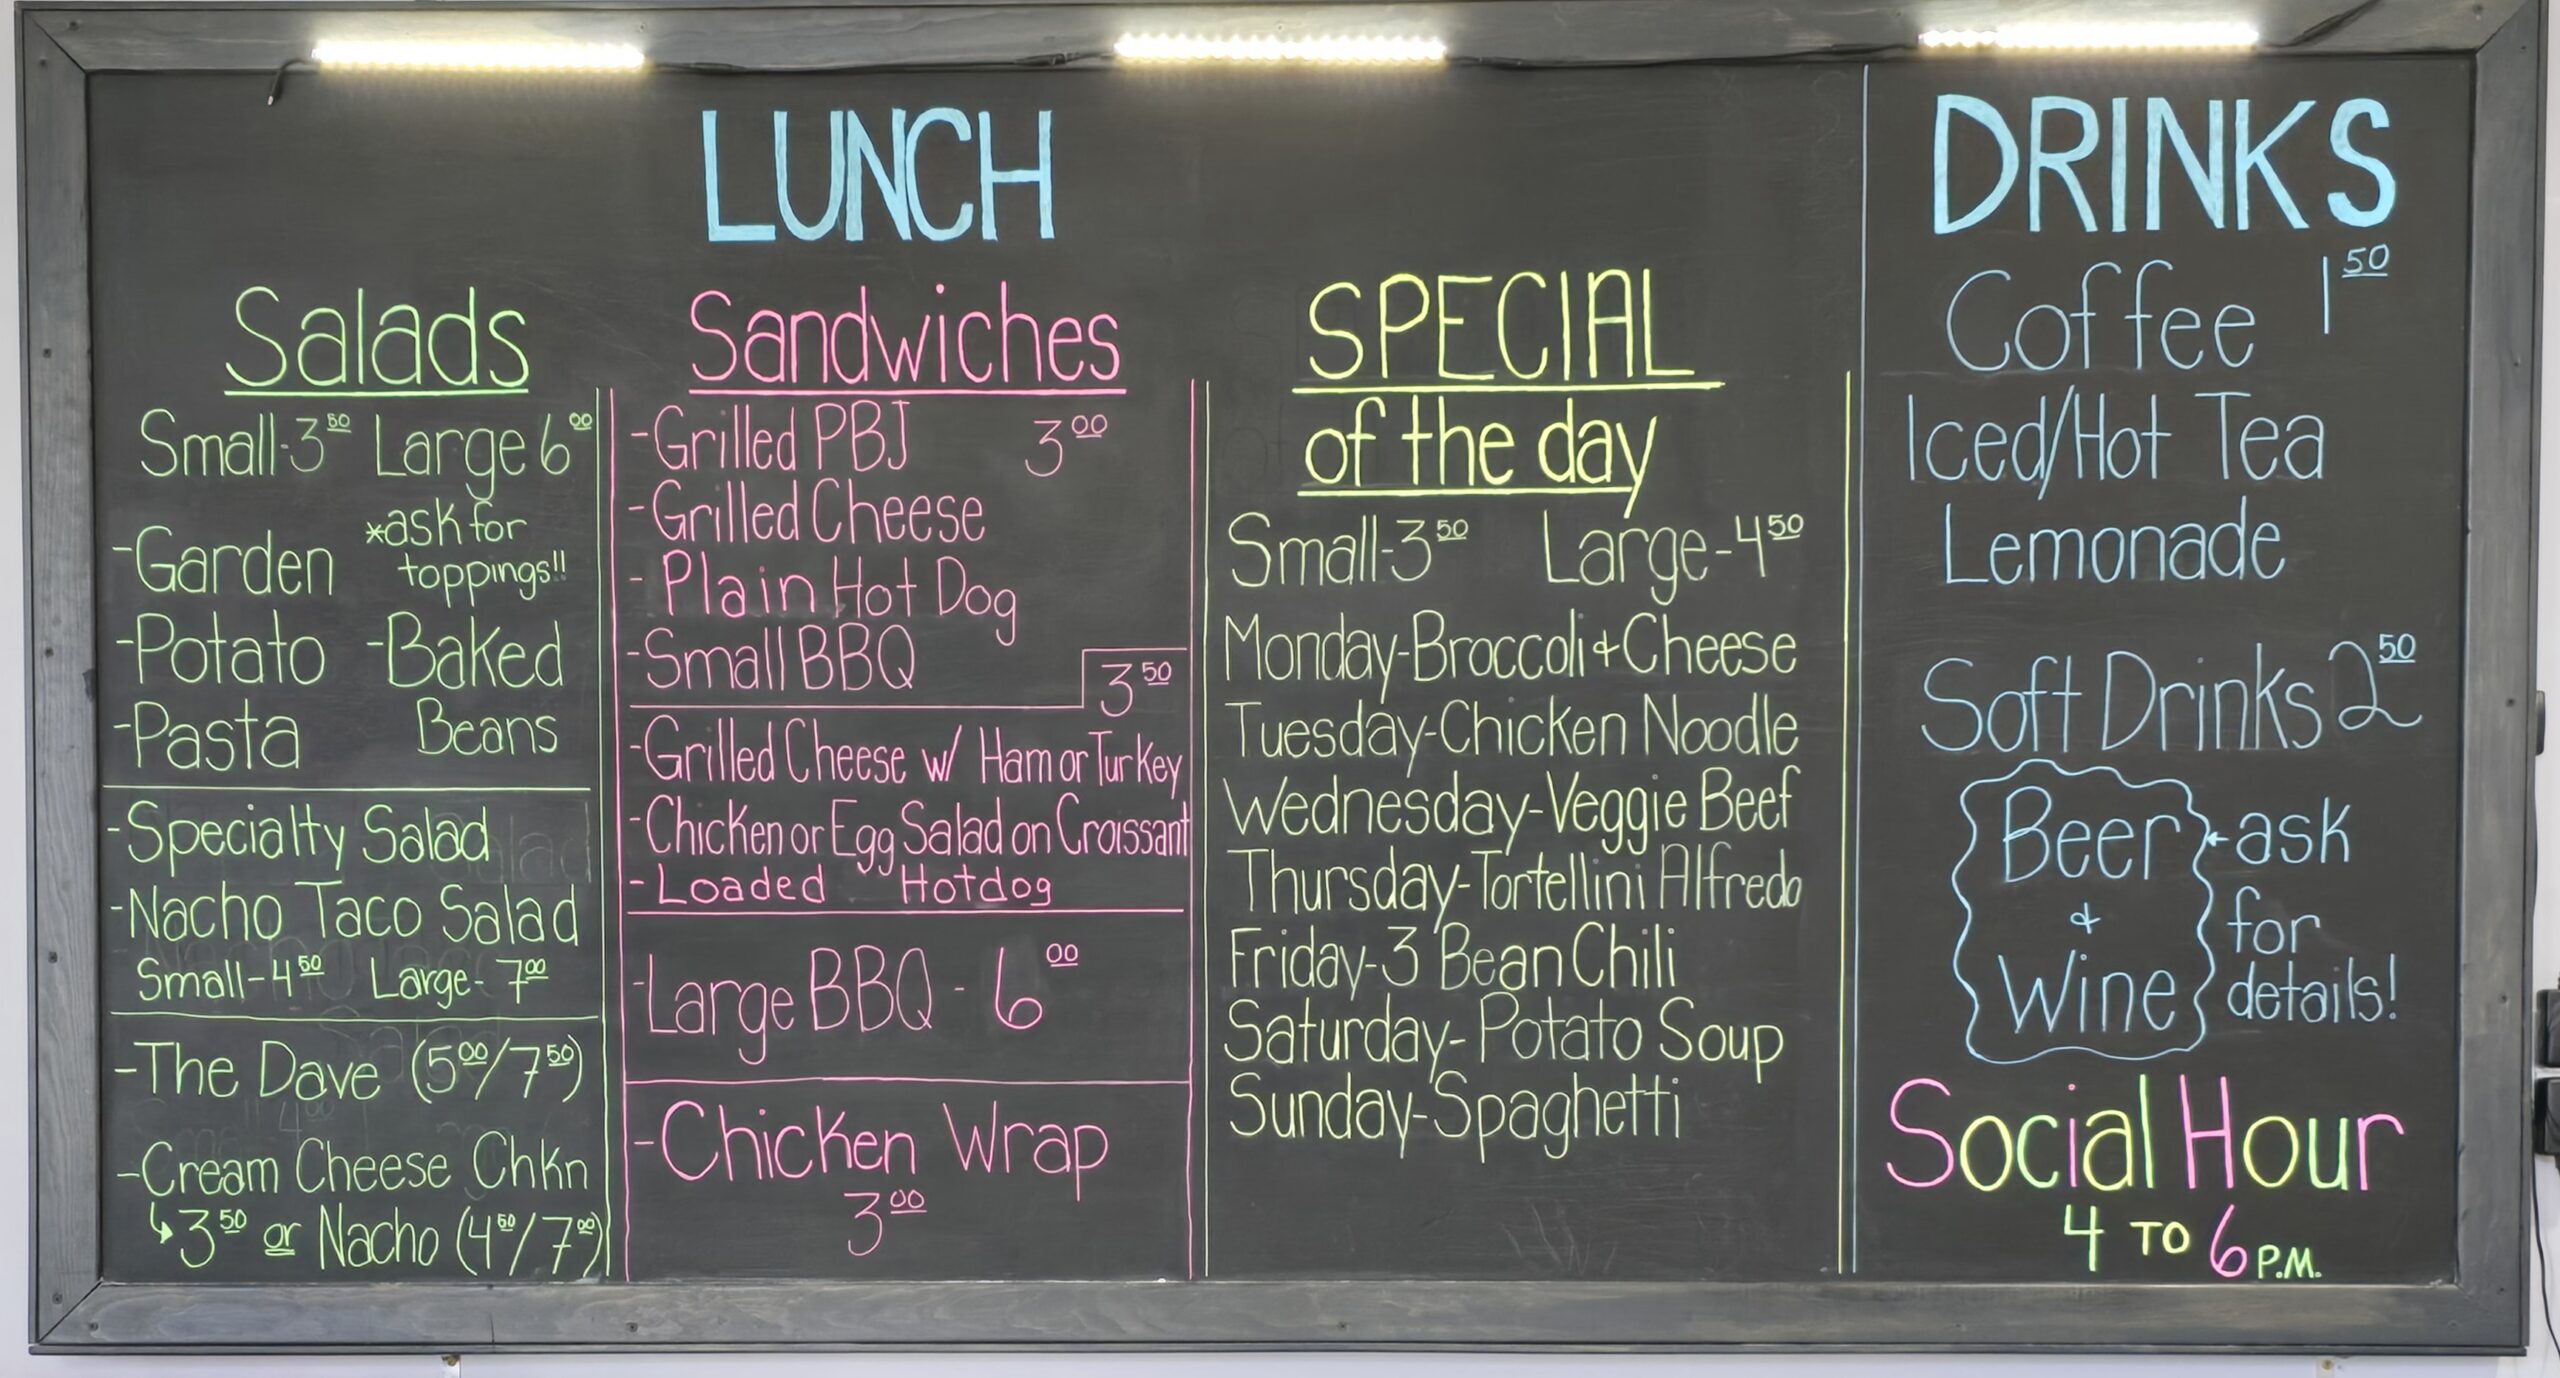 LUNCH
Salads
Small-3⁵⁰ Large 6⁰⁰
-Garden *ask for
toppings!!
-Potato -Baked
-Pasta Beans
-Specialty Salad
-Nacho Taco Salad
Small-4⁵⁰ Large-7⁰⁰
-The Dave (5⁰⁰/7⁵⁰)
-Cream Cheese Chkn
↳3⁵⁰ or Nacho (4⁵⁰/7⁰⁰)
Sandwiches
-Grilled PBJ 3⁰⁰
-Grilled Cheese
-Plain Hot Dog
-Small BBQ
3⁵⁰
-Grilled Cheese w/ Ham or Turkey
-Chicken or Egg Salad on Croissant
-Loaded Hotdog
-Large BBQ - 6⁰⁰
-Chicken Wrap
3⁰⁰
SPECIAL
of the day
Small-3⁵⁰ Large-4⁵⁰
Monday-Broccoli & Cheese
Tuesday-Chicken Noodle
Wednesday-Veggie Beef
Thursday-Tortellini Alfredo
Friday-3 Bean Chili
Saturday-Potato Soup
Sunday-Spaghetti
DRINKS
Coffee 1⁵⁰
Iced/Hot Tea
Lemonade
Soft Drinks 2⁵⁰
Beer
&
Wine
←ask
for
details!
Social Hour
4 TO 6 P.M.